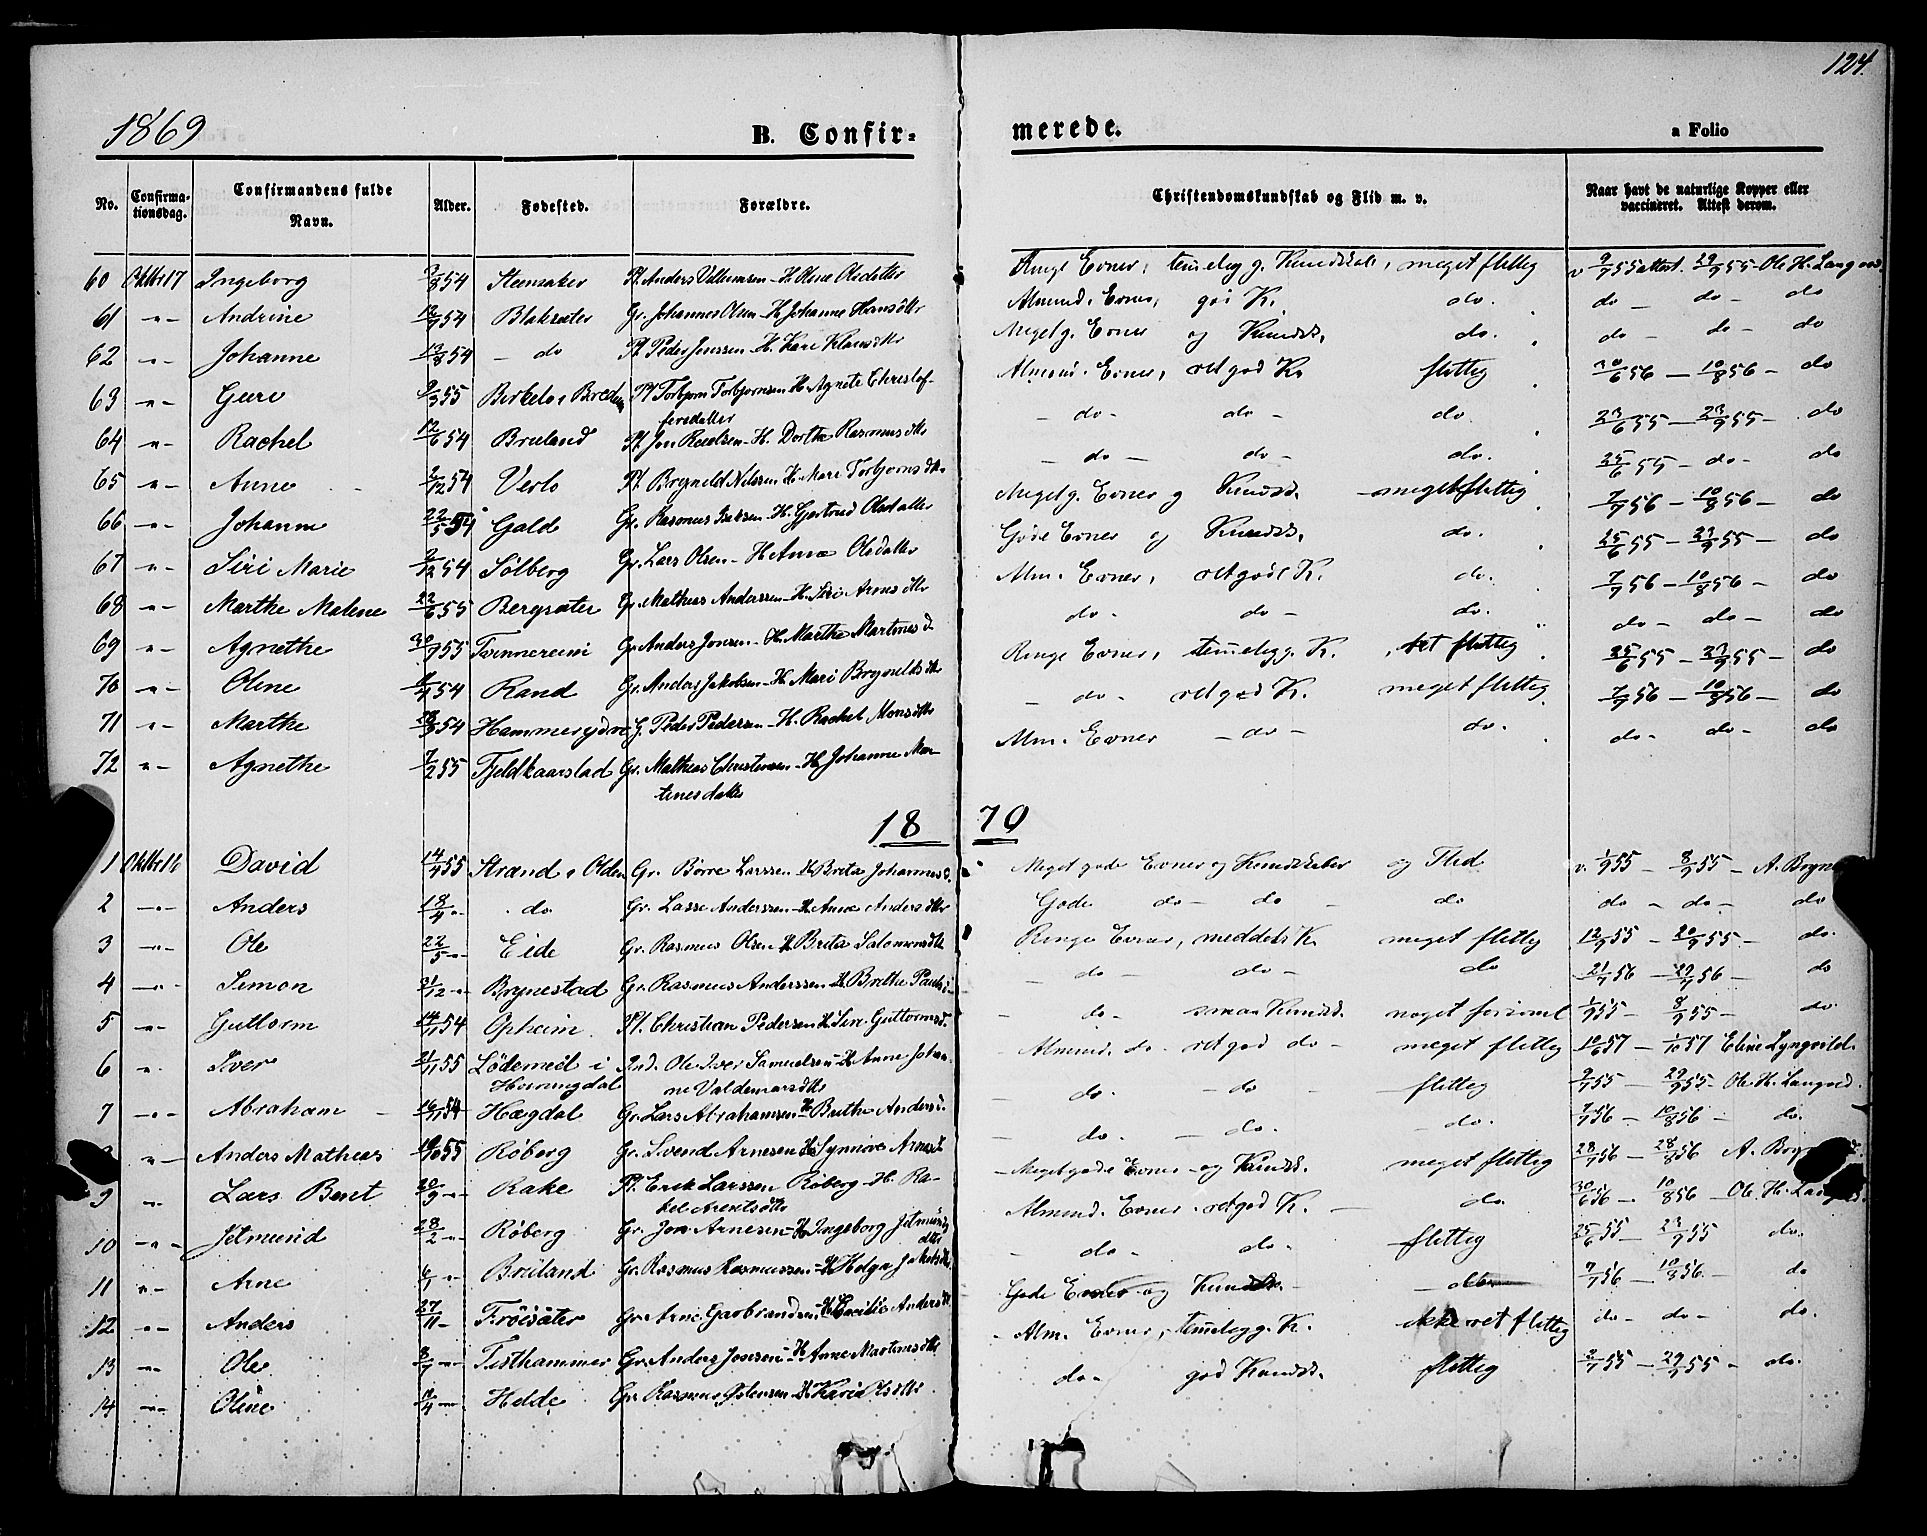 124.
1869
B. Confir-
merede.
a Folio
No.
Confirma-
tionsdag.
Confirmandens fulde
Navn.
Alder.
Fødested.
Forældre.
Christendomskundskab og Flid m. v.
Naar havt de naturlige Kopper eller
vaccineret. Attest derom.
60 Oktbr 17 Ingeborg 54 Steensaker Pl. Anders Villumsen - H. Olene Olsdatter Ringe Evner, temelig g. Kundskab, meget flittig v 9/7 55 attest. 29/9 55 - Ole H. Langved
61 -"- Andrine 54 Blaksæter Gr. Johannes Olsen - H. Johanne Hansdttr Almind. Evner, god K. do. do - do - do
62 -"- Johanne 13/8 54 - do Pl. Peder Jenssen - H. Kari Klausdttr Meget g. Evner og Kundsk. do. do - do - do
63 -"- Guri 9/3 55 Birkelo i Bredem Pl. Torbjørn Torbjørnsen H. Agnete Christof-
fersdatter Almind. Evner, ret god K. flittig 30/6 56 - 10/8 56 - do
64 -"- Rachel 12/6 54 Breland Pl. Jon - H. Dorthe Rasmusdttr - do - do - do. 23/6 55 - 23/9 55 - do
65 -"- Anne 54 Verlo Pl. Brynild Nilssen H. Mari Torbjørnsdttr - do - do - do. 25/6 55 - do - do
66 -"- Johanne 22/5 54 Gald Gr. Rasmus - H. Gjertrud Olsdatter Meget g. Evner og Kundsk. meget flittig 7/7 56 - 10/8 56 - do
67 -"- Siri Marie 54 Sølberg Gr. Lars Olsen - H. Anne Olsdatter Gode Evner og Kundsk. do. 25/6 55 - 23/9 55 - do
68 -"- Marthe Malene 22/6 55 Bergsæter Gr. Mathias Anderssen - H. Siri Arnesdttr Alm. Evner, ret godt K. do. 7/7 56 - 10/8 56 - do
69 -"- Agnethe 55 Tvinnereim Gr. Anders Jonsen - H. Marthe Martinesd. do - do - do. do - do - do
70 -"- Olene 54 Rand Gr. Anders Jakobsen - H. Mari Brynildsdttr Ringe Evner, temelig g. K. ret flittig 25/6 55 - 23/9 55 - do
71 -"- Marthe 54 Hammer ydre G. Peder Pedersen - H. Rachel Monsdttr - do - ret god K. meget flittig 7/7 56 - 10/8 56 - do
72 -"- Agnethe 7/2 55 Fjeldkaarstad Gr. Mathias Christensen - H. Johanne Mar-
tinesdatter Alm. Evner - do - do. do - do - do
1870
1 Oktbr 16 David 14/4 55 Strand i Olden Gr. Børre Larssen H. Brita Johannesd. Meget gode Evner og Kundskaber og Flid v. 1/9 55 - 8/9 55 - A. Bryne
2 -"- Anders 18/4 -"- do Gr. Lasse Anderssen H. Anne Andersdttr Gode do - do - do do - do - do
3 -"- Ole 22/5 -"- Eide Gr. Rasmus Olsen H. Brita Salomonsdttr Ringe Evner, meddels K. meget flittig 12/9 55 - 20/9 55 - do.
4 -"- Simon 31/12 -"- Brynestad Gr. Rasmus Anderssen H. Brithe Paulsd. - do - do - do 21/7 56 - 29/7 56 - do
5 -"- Guttorm 14/11 54 Opheim Pl. Christian Pedersen H. Siri Guttormsd. - do - smaa Kundsk. noget forsømt 1/9 55 - 8/9 55 - do
6 -"- Iver 21/11 55 Lødemel i
Horningdal Ind. Ole Iver Samuelsen H. Anne Johan-
ne Valdemarsdttr - Almind. do - ret god do - meget flittig 10/6 57 - 1/10 57 Eline Lyngvild.
7 -"- Abraham 16/11 54 Hægdal Gr. Lars Abrahamsen H. Brithe Andersd. - do. - do - flittig 9/7 55 - 29/9 55 - Ole H. Langved.
-"- Anders Mathias 19/10 55 Røberg Gr. Svend Arnesen H. Synnøve Arnesd. - do. - do. - do. 7/7 56 - 10/8 56 - do.
9 -"- Lars Bent 20/9 -"- Rake Pl. Erik Larssen Røberg - H. Ra-
kel Arentsdttr - Meget gode Evner - og Kundsk. meget flittig 28/7 56 - 28/8 56 A. Bry
10 -"- Jetmund 28/2 -"- Røberg Gr. Jon Arnesen - H. Ingeborg Jetmunds
dttr Almind. Evner - ret god K. - do. 30/6 56 - 10/8 56 - Ole H. Langved
11 -"- Arne 6/1 -"- Breland Gr. Rasmus Rasmussen - H. Helga Jakobsdttr - do - do - flittig 25/6 55 - 23/9 55 do.
12 -"- Anders 27/11 - Frøisæter Gr. Arne Garbrandsen H. Cecilie Andersdttr Gode Evner og Kundsk. - do 7/7 56 - 10/8 56 - do
13 -"- Ole 8/7 -"- Tisthammer Gr. Anders Jonsen - H. Anne Martinsdttr - Alm. Evner, temelig g. K. ikke ret flittig do - do - do.
14 -"- Oline -"- Helde Gr. Rasmus - H. Kari Olsdttr do - god Kundsk. flittig 55 - 29/9 55 - do.